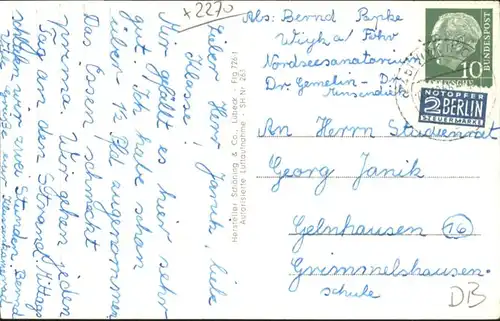 +2270
Lieber Herr Janik, liebe
Klasse!
Mir gefällt es hier sehr
gut. Ich habe schon
über 12 Pfd zugenommen.
Das Essen schmeckt
prima. Wir gehen jeden
Tag an den Strand. Mittags
schlafen wir zwei Stunden.
Viele Grüße, euer Bernd
Hersteller Schöning & Co., Lübeck · Frg 726 f
Autorisierte Luftaufnahme · SH Nr 261
Abs: Bernd Papke
Wyk a/ Föhr
Nordseesanatorium
Dr. Gmelin-
An Herrn Studienrat
Georg Janik
Gelnhausen 16
Grimmelshausen-
schule
DB
DEUTSCHE BUNDESPOST
10
NOTOPFER
2 BERLIN
STEUERMARKE